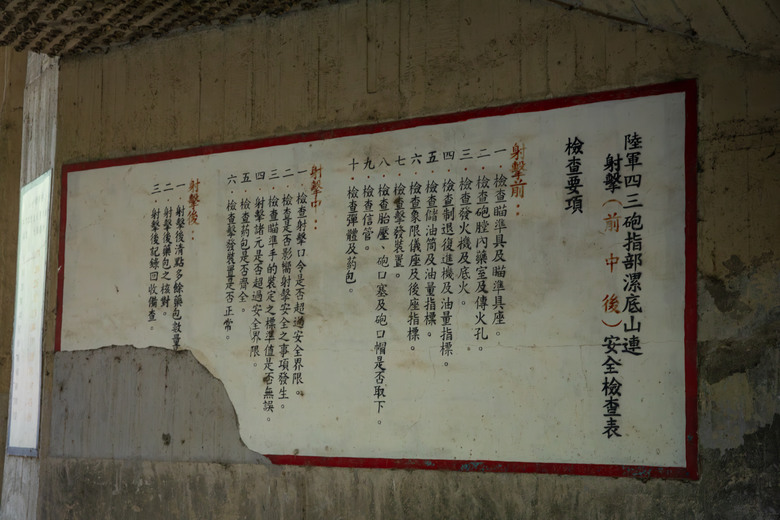 陸軍四三砲指部漯底山連
射擊（前中後）安全檢查表
檢查要項
射擊前：
一．檢查瞄準具及瞄準具座。
二．檢查砲膛內藥室及傳火孔。
三．檢查發火機及底火。
四．檢查制退復進機及油量指標。
五．檢查儲油筒及油量指標。
六．檢查象限儀座及後座指標。
七．檢查擊發裝置。
八．檢查胎壓、砲口塞及砲口帽是否取下。
九．檢查信管。
十．檢查彈體及葯包。
射擊中：
一．檢查射擊口令是否超過安全界限。
二．檢查是否影嚮射擊安全之事項發生。
三．檢查瞄準手的裝定之標準值是否無誤。
四．射擊諸元是否超過安全界限。
五．檢查葯包是否齊全。
六．檢查擊發裝置是否正常。
射擊後：
一．射擊後清點多餘藥包數量
二．射擊後藥包之核對。
三．射擊後記錄回收備查。